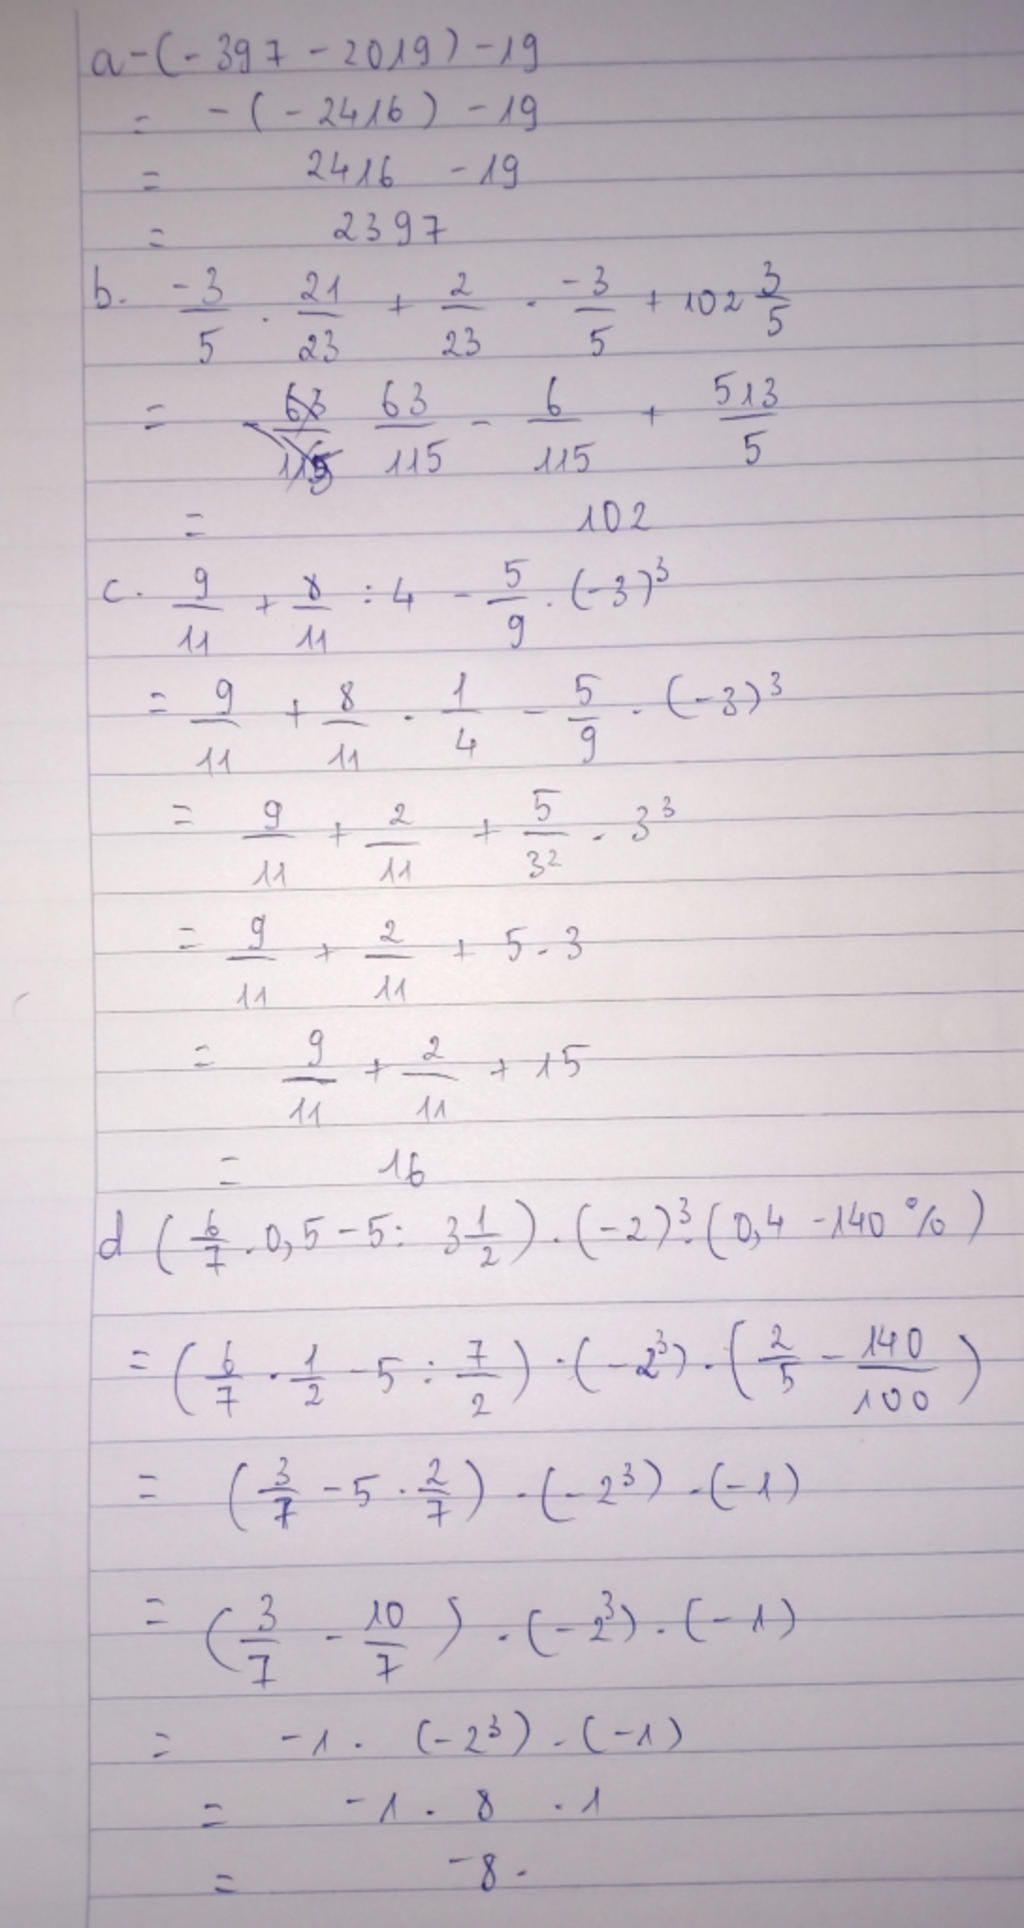 a -(-397 - 2019) - 19
= -(-2416) - 19
= 2416 - 19
= 2397
b. -3/5 . 21/23 + 2/23 . -3/5 + 102 3/5
= 63/115 - 6/115 + 513/5
= 102
c. 9/11 + 8/11 : 4 - 5/9 . (-3)³
= 9/11 + 8/11 . 1/4 - 5/9 . (-3)³
= 9/11 + 2/11 + 5/3² . 3³
= 9/11 + 2/11 + 5 . 3
= 9/11 + 2/11 + 15
= 16
d (6/7 . 0,5 - 5 : 3 1/2) . (-2)³ . (0,4 - 140%)
= (6/7 . 1/2 - 5 : 7/2) . (-2³) . (2/5 - 140/100)
= (3/7 - 5 . 2/7) . (-2³) . (-1)
= (3/7 - 10/7) . (-2³) . (-1)
= -1 . (-2³) . (-1)
= -1 . 8 . 1
= -8 .